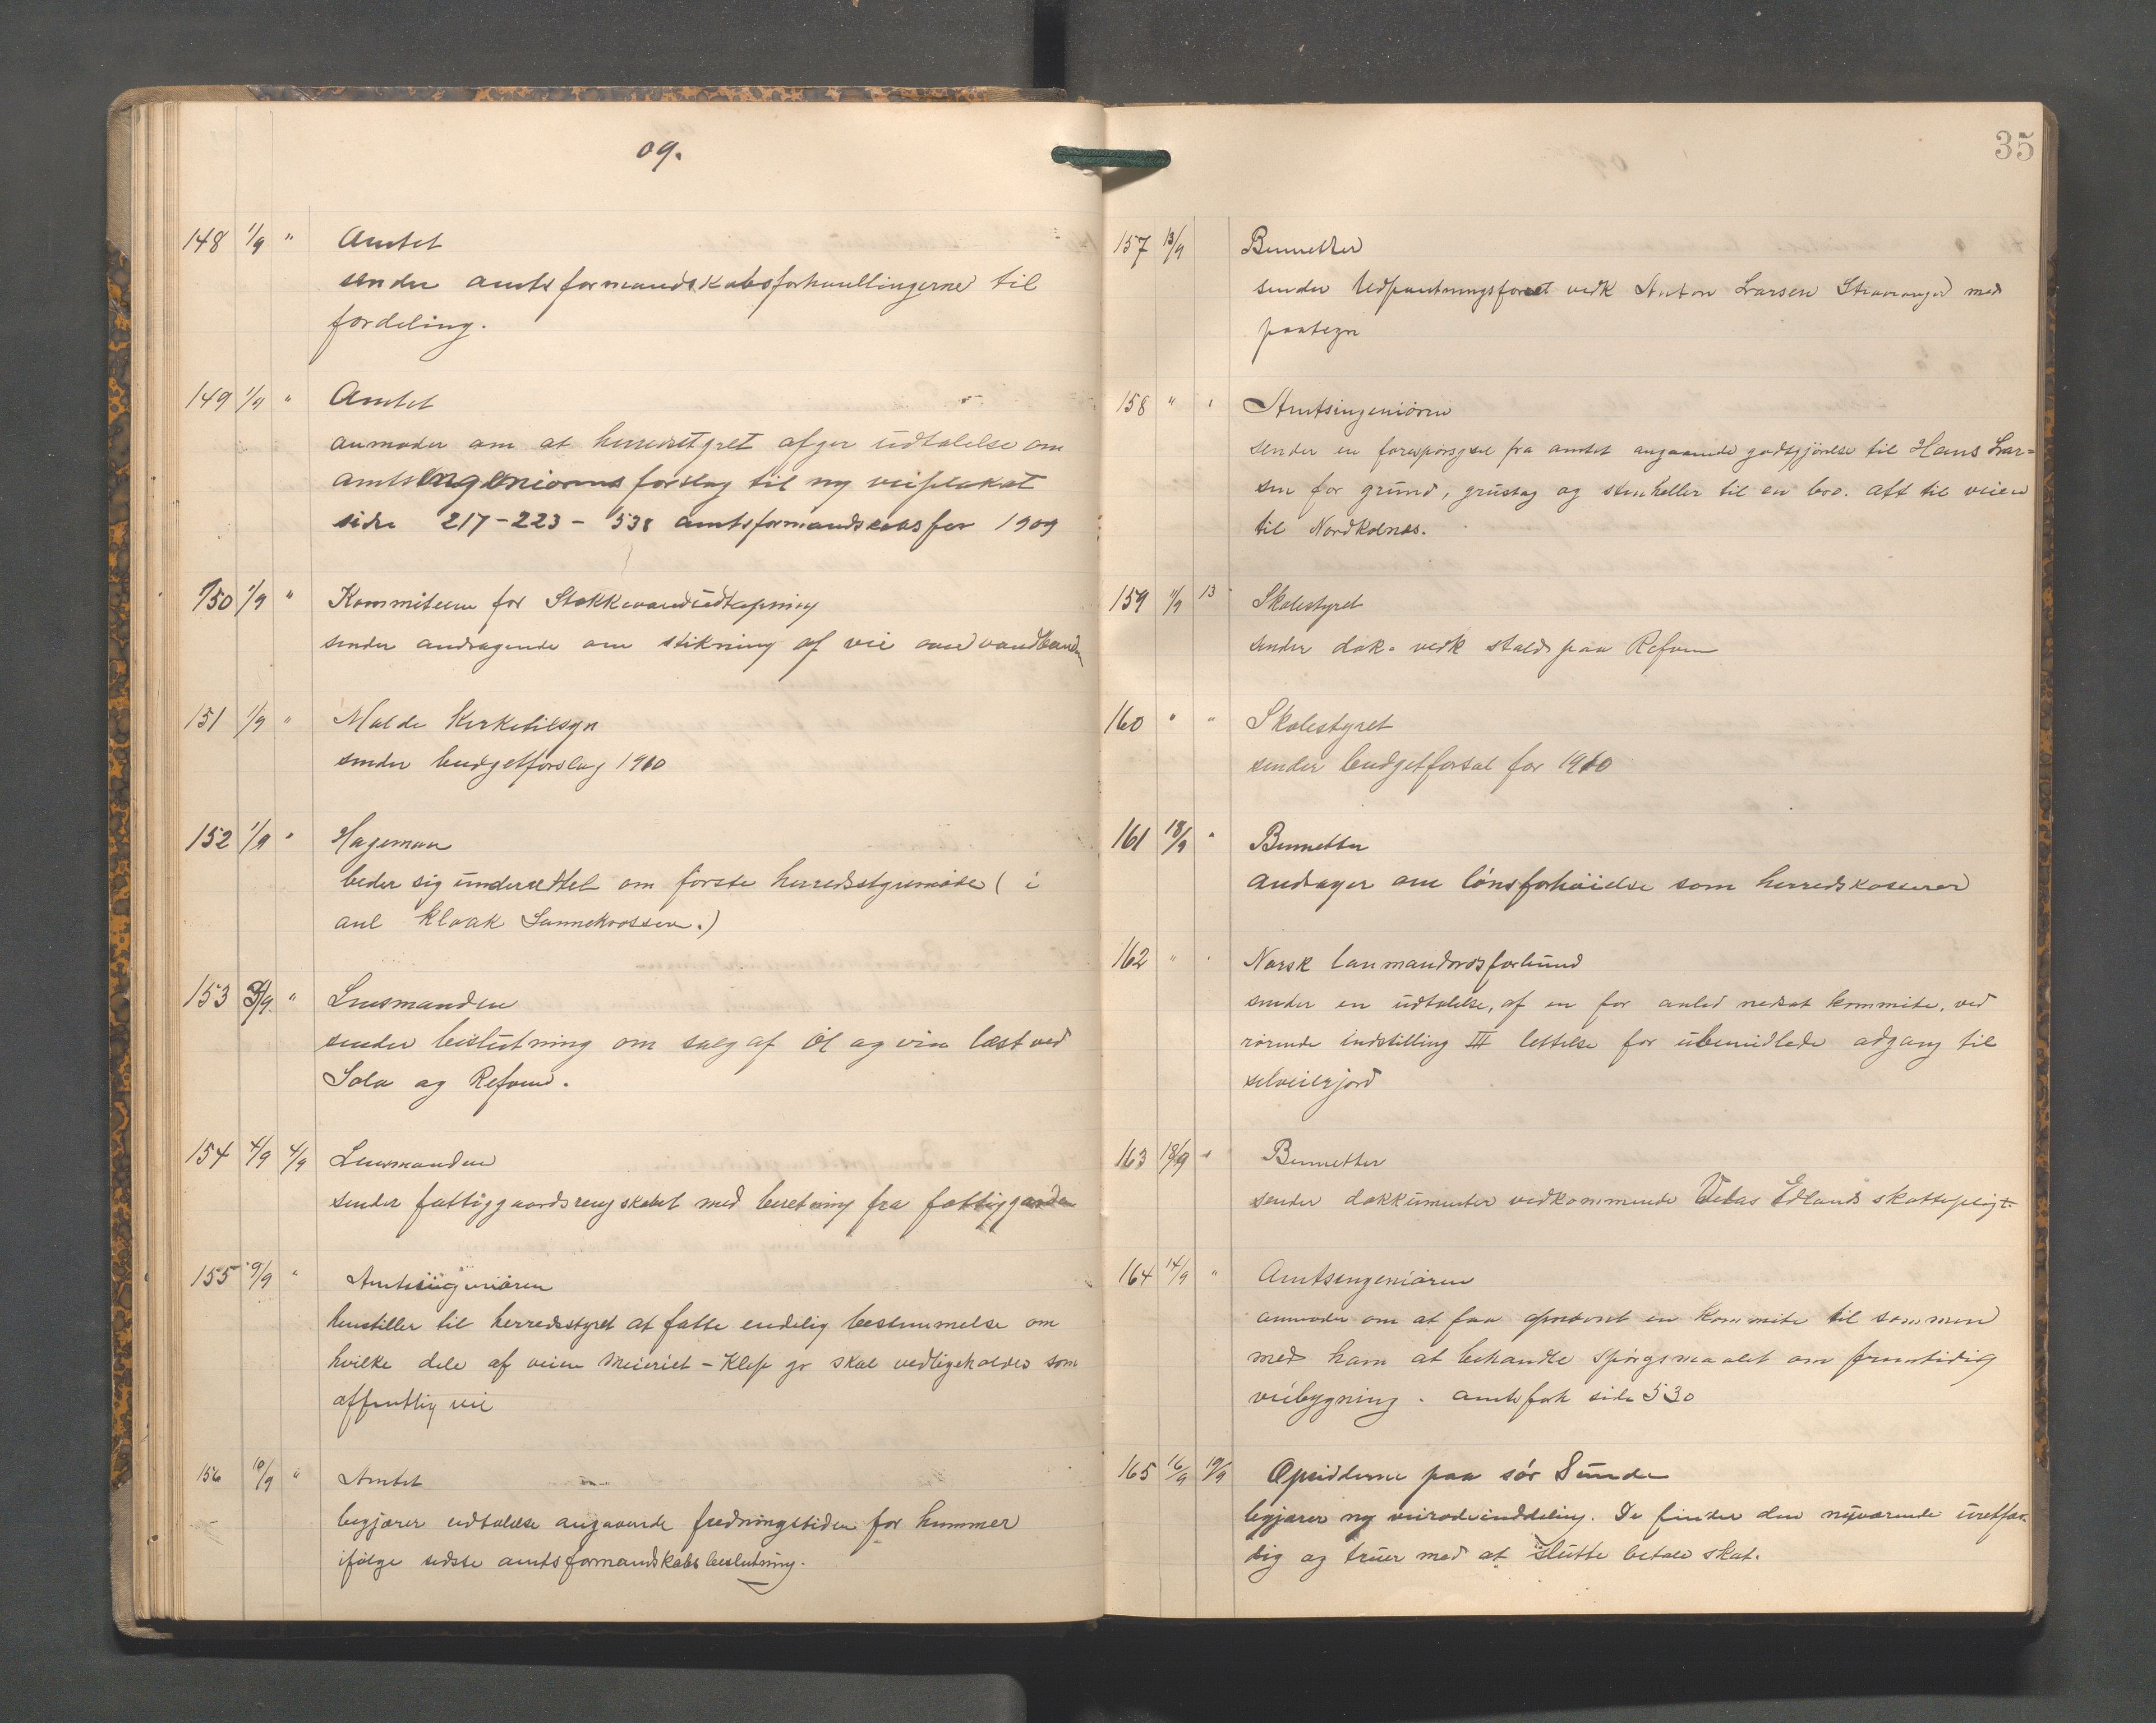 09.
148 1/9 " Amtet
sender amtsformandskabsforhandlingerne til
fordeling.
149 1/9 " Amtet
anmoder om at herredstyret afger udtalelse om
amtsingeniørens forslag til ny veiplakat
side 217-223-538 amtsformandskabsfor 1909
150 1/9 " Kommiteen for Stokkevandudtapning
sender andragende om stikning af vei
151 1/9 " Malde Kirketilsyn
sender budgetforslag 1910
152 1/9 " Hageman
beder sig underrettet om første herredsstyremøde ( i
anl kloak Sannekrossen.)
153 3/9 " Lensmanden
sender beslutning om salg af øl og vin løst ved
Sola og Refsnes.
154 4/9 4/9 Lensmanden
sender fattiggaardsregnskabet med beretning fra fattiggarden
155 9/9 " Amtsingeniøren
henstiller til herredsstyret at fatte endelig bestemmelse om
hvilke dele af veien Meieriet - Klep gr skal vedligeholdes som
offentlig vei
156 10/9 " Amtet
begjærer udtalelse angaaende fredningstiden for hummer
ifølge sidste amtsformandskabsbeslutning.
35
157 13/9 Bernetter
sender Udpantningsforret vedk Anton Larsen Stavanger med
paategn
158 " " Amtsingeniøren
sender en forespørsgsel fra amtet angaaende godtgjørelse til Hans Lar=
sen for grund, grustag og stenheller til en bro. alt til veien
til Nordkolnes.
159 11/9 13 Skolestyret
sender dok. vedk stalds paa
160 " " Skolestyret
sender budgetforsal for 1910
161 18/9 " Bernetter
andrager om lønsforhøielse som herredskasserer
162 " " Norsk lanmandsforbund
sender en udtalelse, af en for anled nedsat kommite, ved
rørende indstilling III lettelse for ubemidlede adgang til
selveierjord
163 18/9 " Bernetter
sender dokkumenter vedkommende Edlands skattepligt
164 14/9 " Amtsingeniøren
anmoder om at faa opnevnt en kommite til sammen
med ham at behandle spørgsmaalet om fremtidig
veibygning. amtsforh side 530
165 16/9 19/9 Opsidderne paa sør Sunde
begjærer ny veirodeinddeling. De finder den nuværende uretfær-
dig og truer med at slutte betale skat.